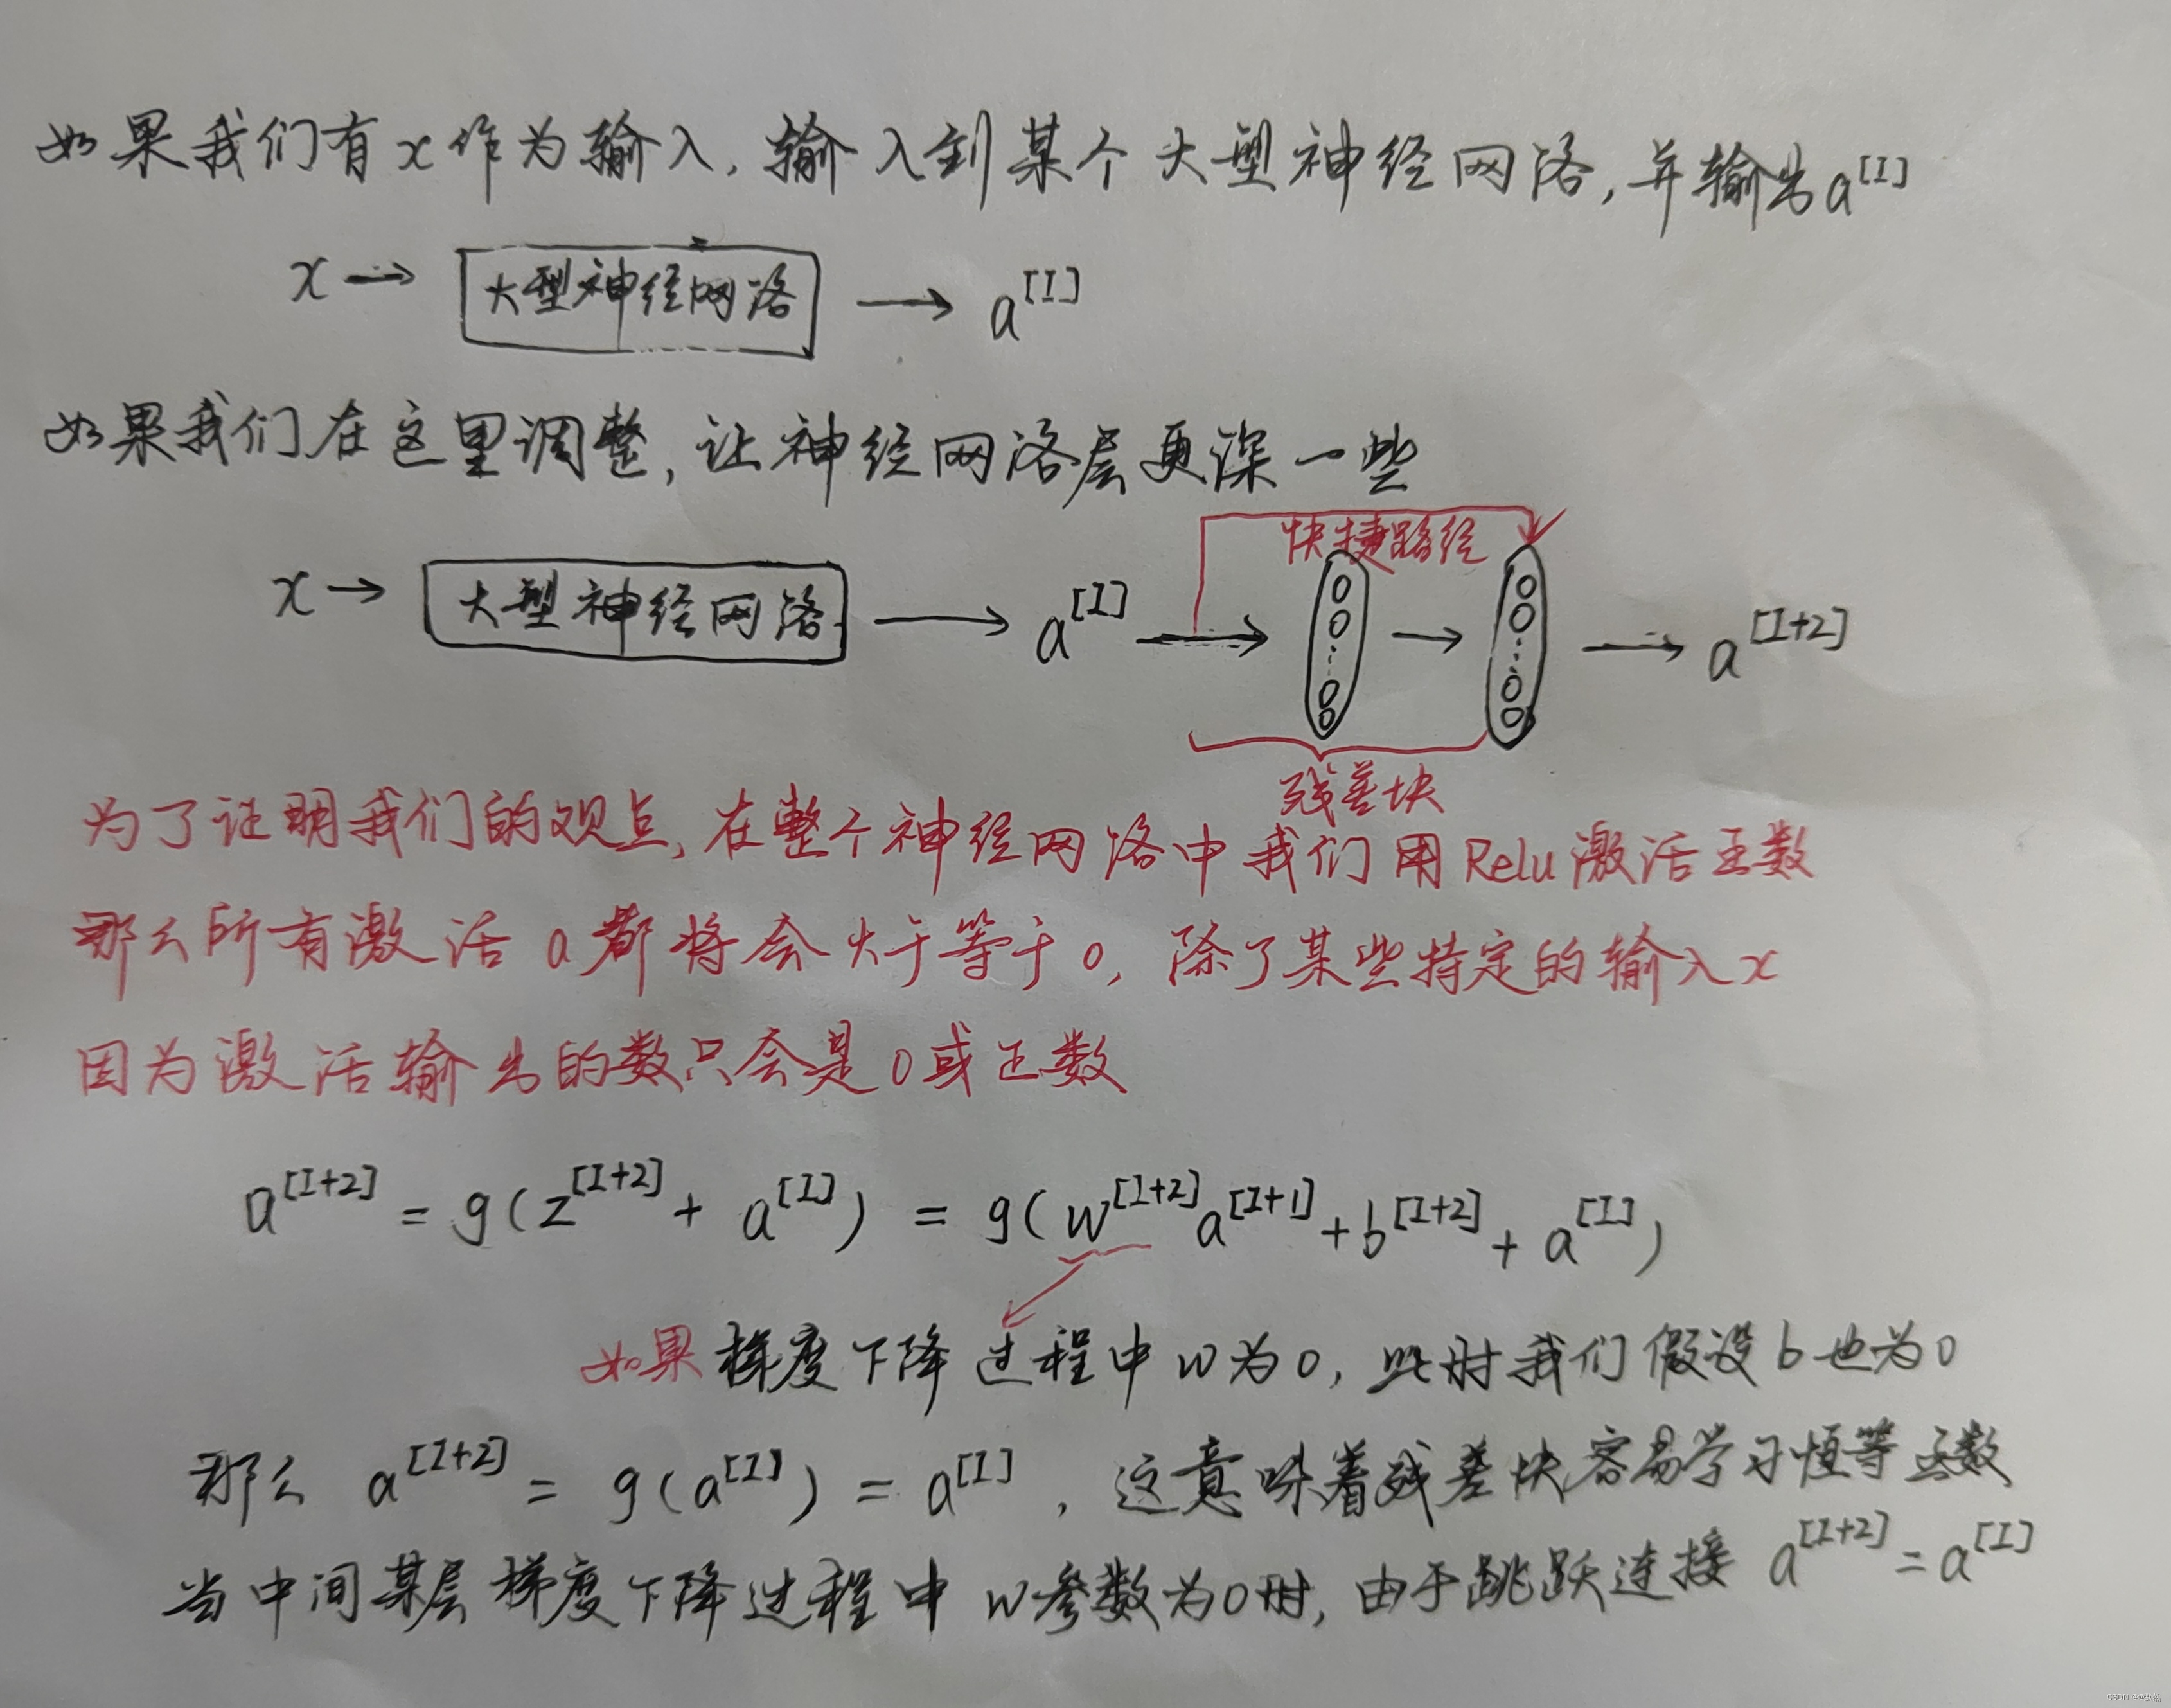 如果我们有x作为输入,输入到某个大型神经网络,并输出a^[I]
x → 大型神经网络 → a^[I]
如果我们在这里调整,让神经网络层更深一些
快捷路径
x → 大型神经网络 → a^[I] → → → a^[I+2]
残差块
为了证明我们的观点,在整个神经网络中我们用Relu激活函数
那么所有激活a都将会大于等于0,除了某些特定的输入x
因为激活输出的数只会是0或正数
a^[I+2] = g(z^[I+2] + a^[I]) = g(w^[I+2] a^[I+1] + b^[I+2] + a^[I])
如果梯度下降过程中w为0,此时我们假设b也为0
那么 a^[I+2] = g(a^[I]) = a^[I],这意味着残差块容易学习恒等函数
当中间某层梯度下降过程中w参数为0时,由于跳跃连接 a^[I+2] = a^[I]